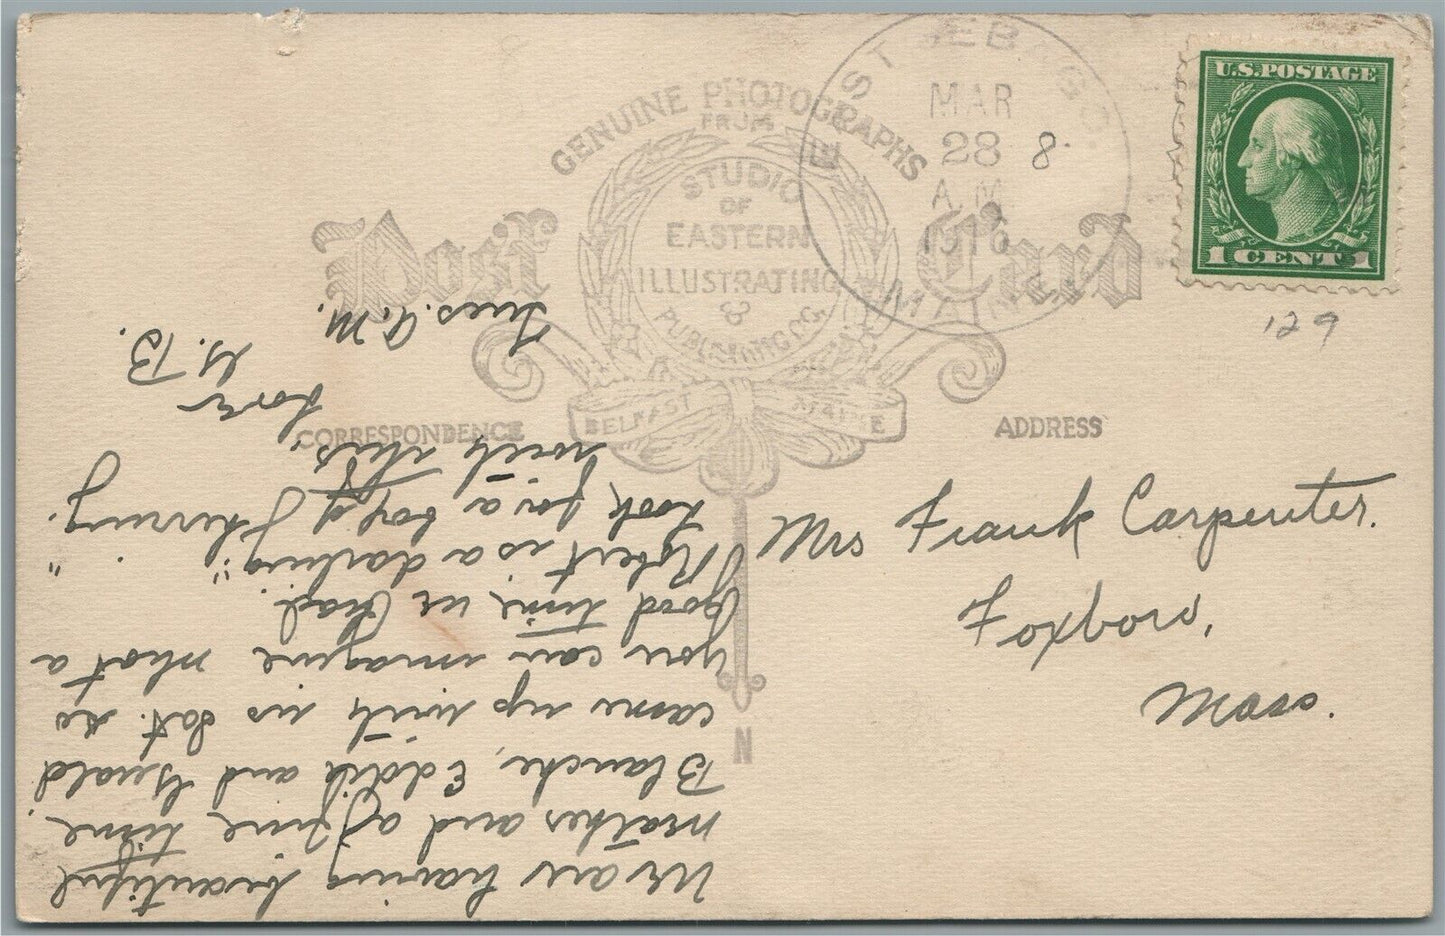 GENUINE PHOTOGRAPHS
FROM
STUDIO
OF
EASTERN
ILLUSTRATING
&
PUBLISHING CO.
Post Card
BELFAST MAINE
CORRESPONDENCE
ADDRESS
N
EAST SEBAGO.
MAR
28 8
A.M.
1916
MAINE
U.S. POSTAGE
1 CENT 1
129
Mrs Frank Carpenter.
Foxboro,
Mass.
Tues. A.M.
We are having beautiful
weather and a fine time.
Blanche, Eddie and Gerald
came up with us Sat. so
you can imagine what a
good time we had.
Robert is a darling."
Look for a box of "
with this.
Love
G. B.